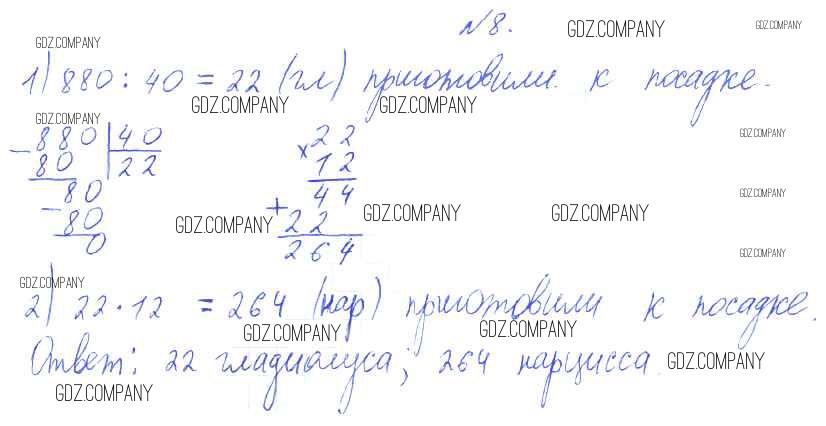 №8.
GDZ.COMPANY GDZ.COMPANY GDZ.COMPANY
1) 880 : 40 = 22 (гл) приготовили к посадке.
GDZ.COMPANY GDZ.COMPANY
GDZ.COMPANY
− 880 | 40 × 22 GDZ.COMPANY
80 22 12
80 44 GDZ.COMPANY
− 80 + 22 GDZ.COMPANY GDZ.COMPANY GDZ.COMPANY
0 264 GDZ.COMPANY
GDZ.COMPANY
2) 22 · 12 = 264 (нар) приготовили к посадке.
GDZ.COMPANY GDZ.COMPANY
Ответ: 22 гладиолуса, 264 нарцисса. GDZ.COMPANY
GDZ.COMPANY